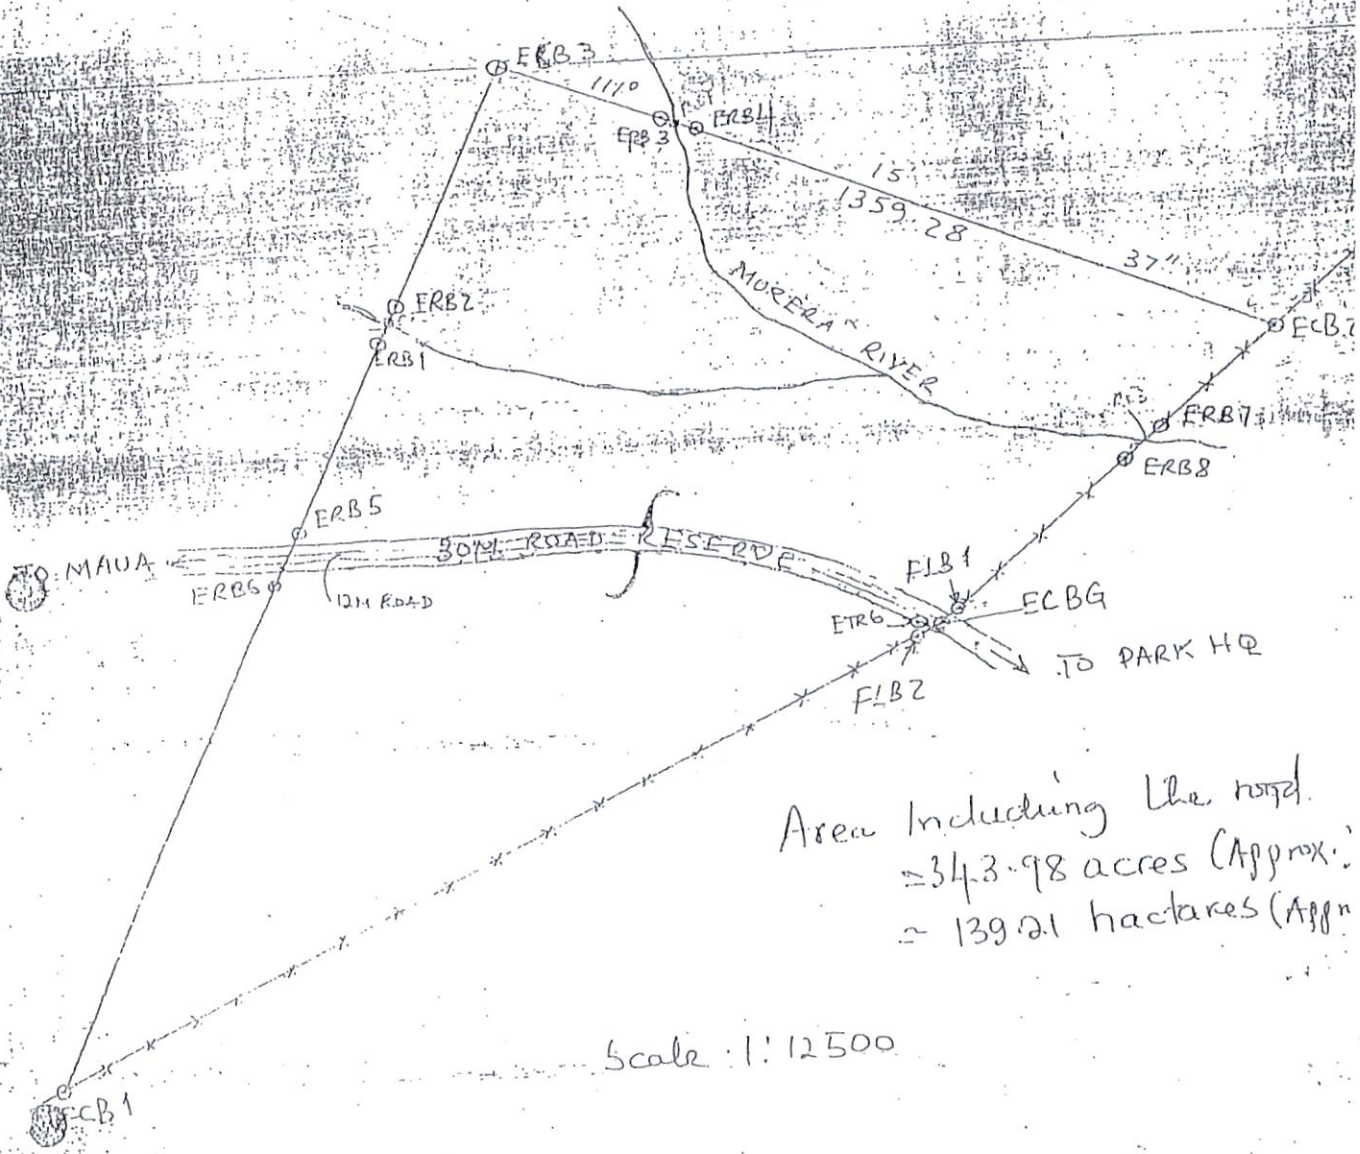 ERB3
ERB4
ERB3
15
1359.28
37"
MURERA RIVER
ERB2
ERB1
ERB7
ERB8
ERB5
TO MAUA
30M ROAD RESERVE
ERB6
12M ROAD
FLB1
ECBG
ETR6
TO PARK HQ
FLB2
Area Including the road
=343.98 acres (Approx.
= 139.21 hactares (App
Scale : 1:12500